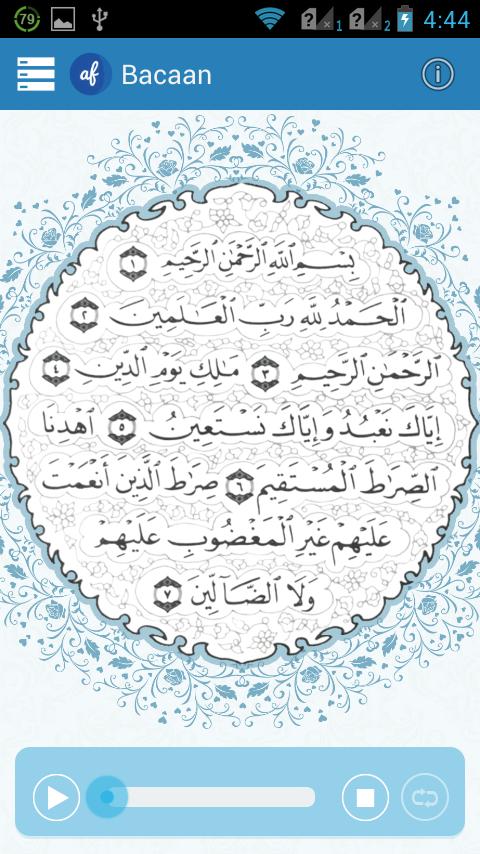 79
1
2
4:44
af Bacaan
بِسْمِ ٱللَّهِ ٱلرَّحْمَٰنِ ٱلرَّحِيمِ ١
ٱلْحَمْدُ لِلَّهِ رَبِّ ٱلْعَٰلَمِينَ ٢
ٱلرَّحْمَٰنِ ٱلرَّحِيمِ ٣ مَٰلِكِ يَوْمِ ٱلدِّينِ ٤
إِيَّاكَ نَعْبُدُ وَإِيَّاكَ نَسْتَعِينُ ٥ ٱهْدِنَا
ٱلصِّرَٰطَ ٱلْمُسْتَقِيمَ ٦ صِرَٰطَ ٱلَّذِينَ أَنْعَمْتَ
عَلَيْهِمْ غَيْرِ ٱلْمَغْضُوبِ عَلَيْهِمْ
وَلَا ٱلضَّآلِّينَ ٧